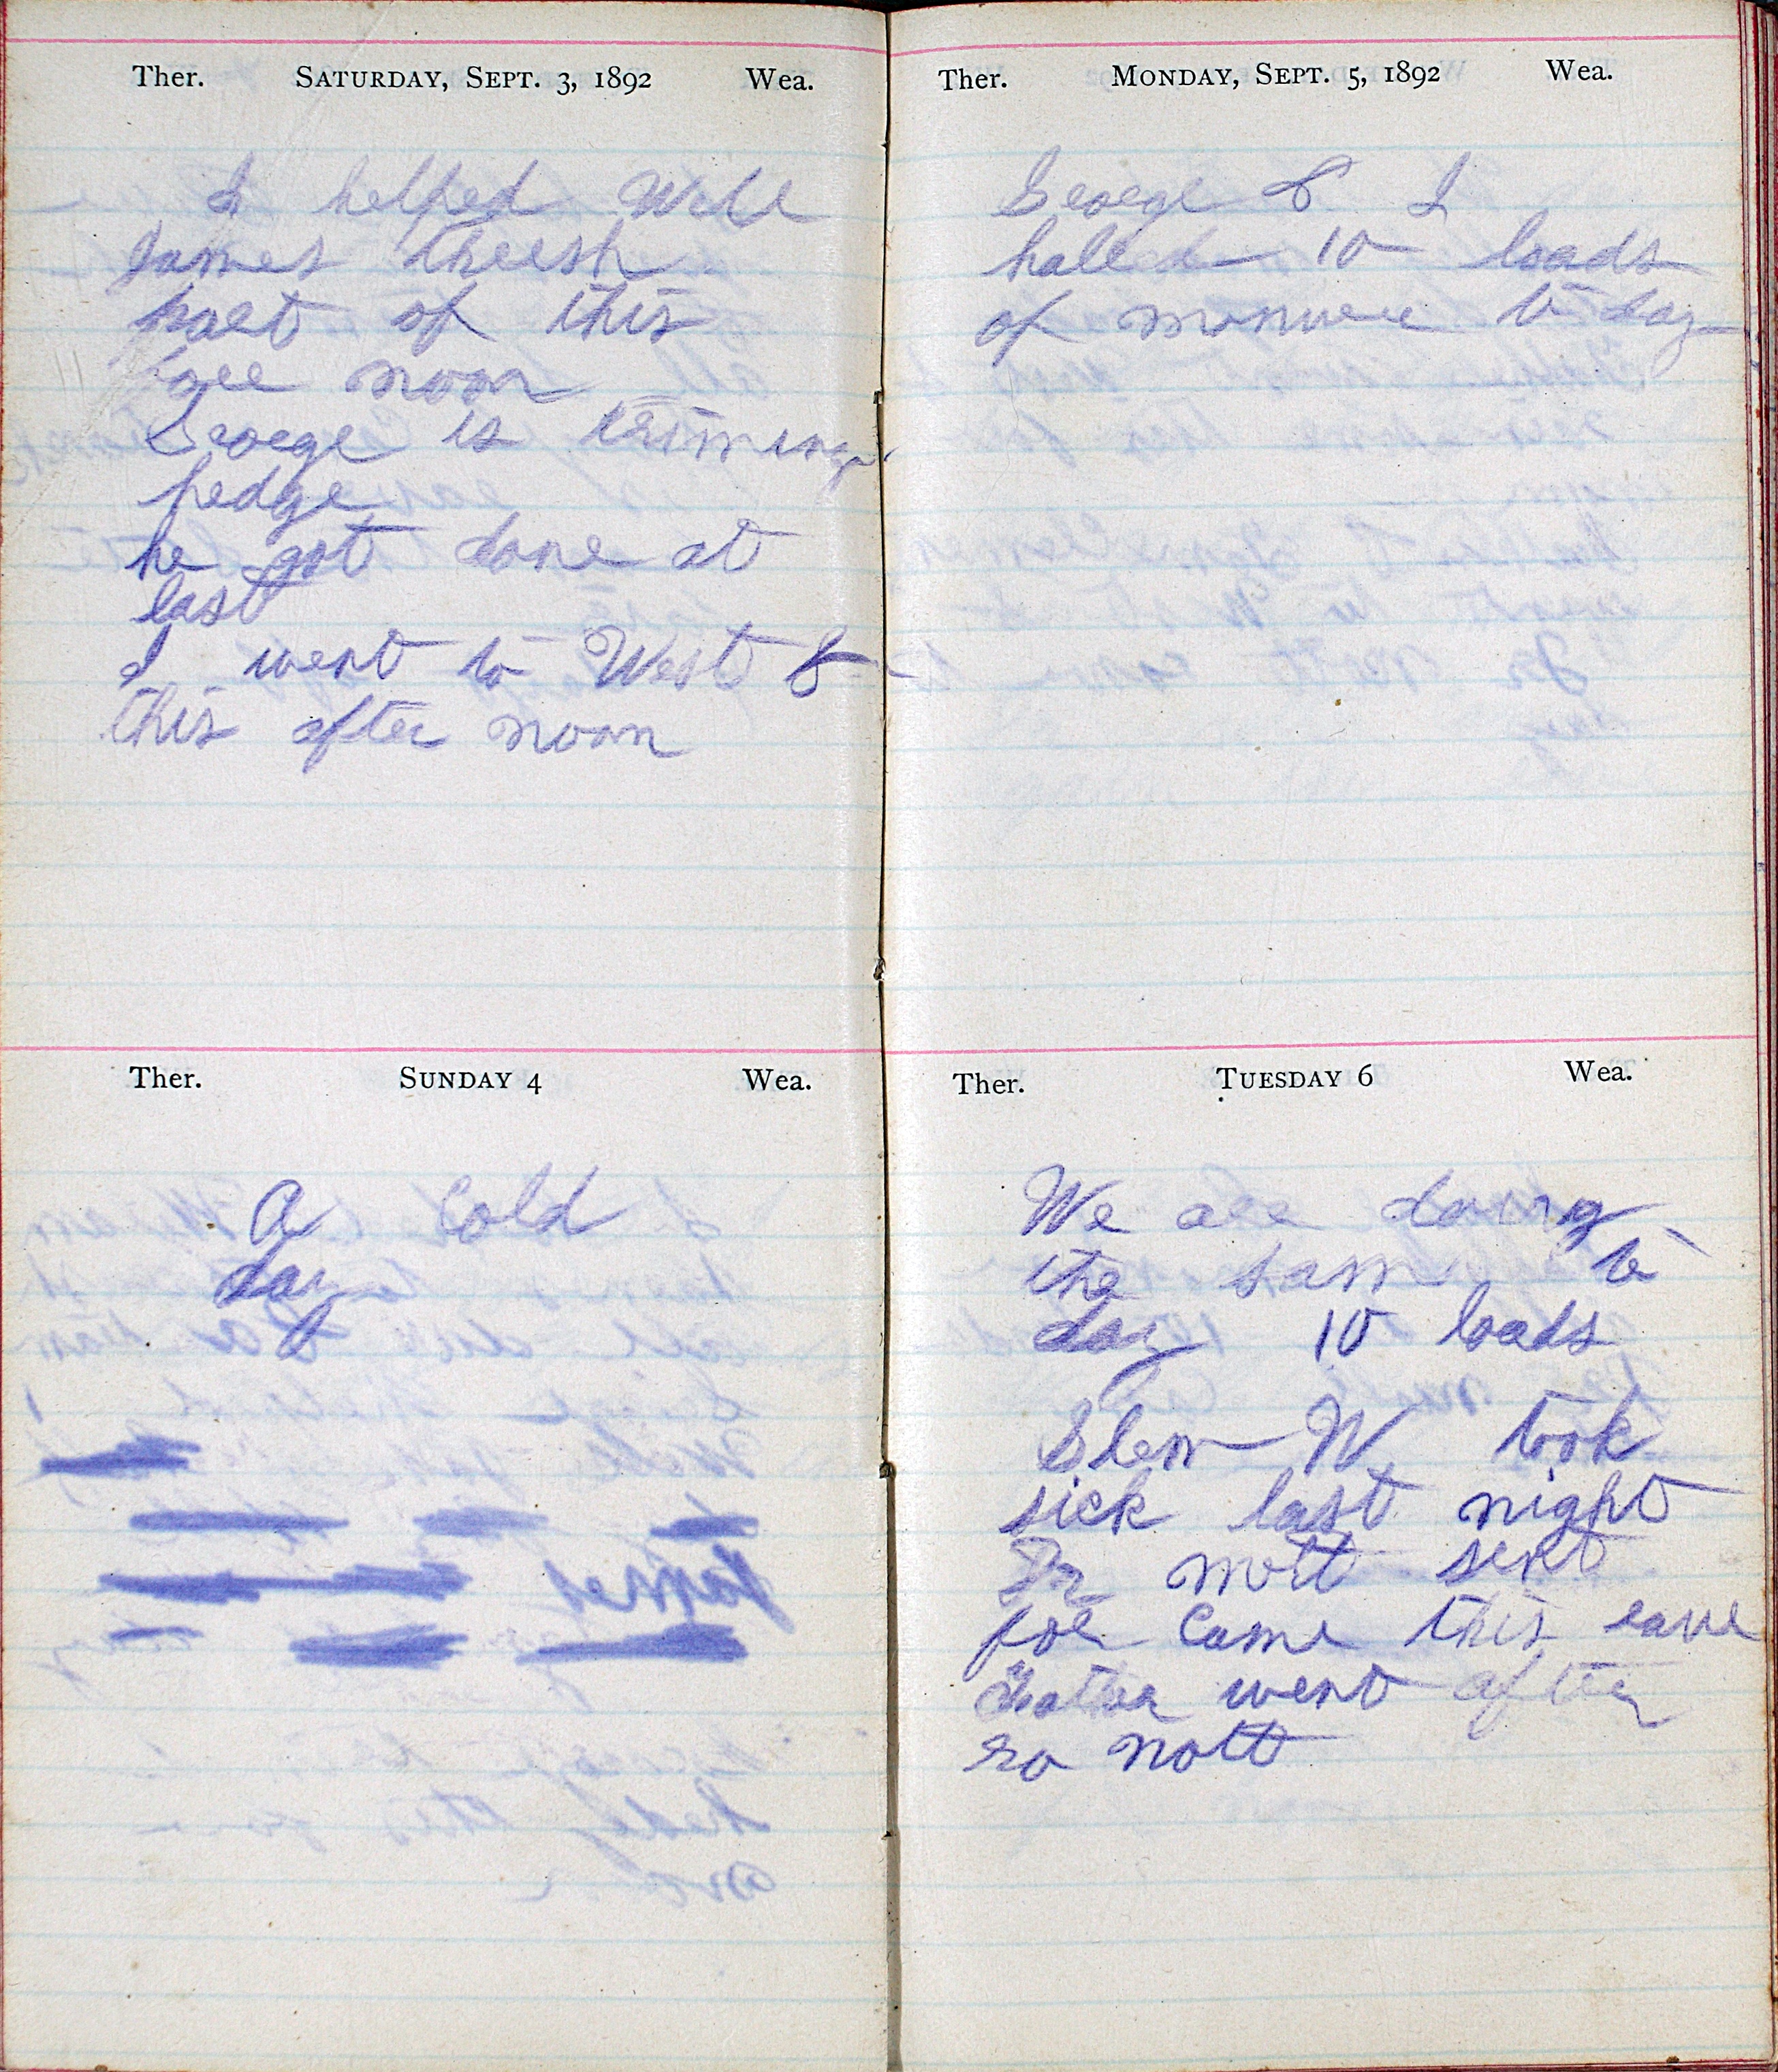 Ther. SATURDAY, SEPT. 3, 1892 Wea.
I helped Will
James thresh
part of this
fore noon
George is triming
hedge
he got done at
last
I went to West B
this after noon
Ther. SUNDAY 4 Wea.
A Cold
day
Ther. MONDAY, SEPT. 5, 1892 Wea.
George & I
haled 10 loads
of monure to day
Ther. TUESDAY 6 Wea.
We are doing
the sam to
day 10 loads
Glen W took
sick last night
Dr mott sent
for Came this eave
Father went after
nott